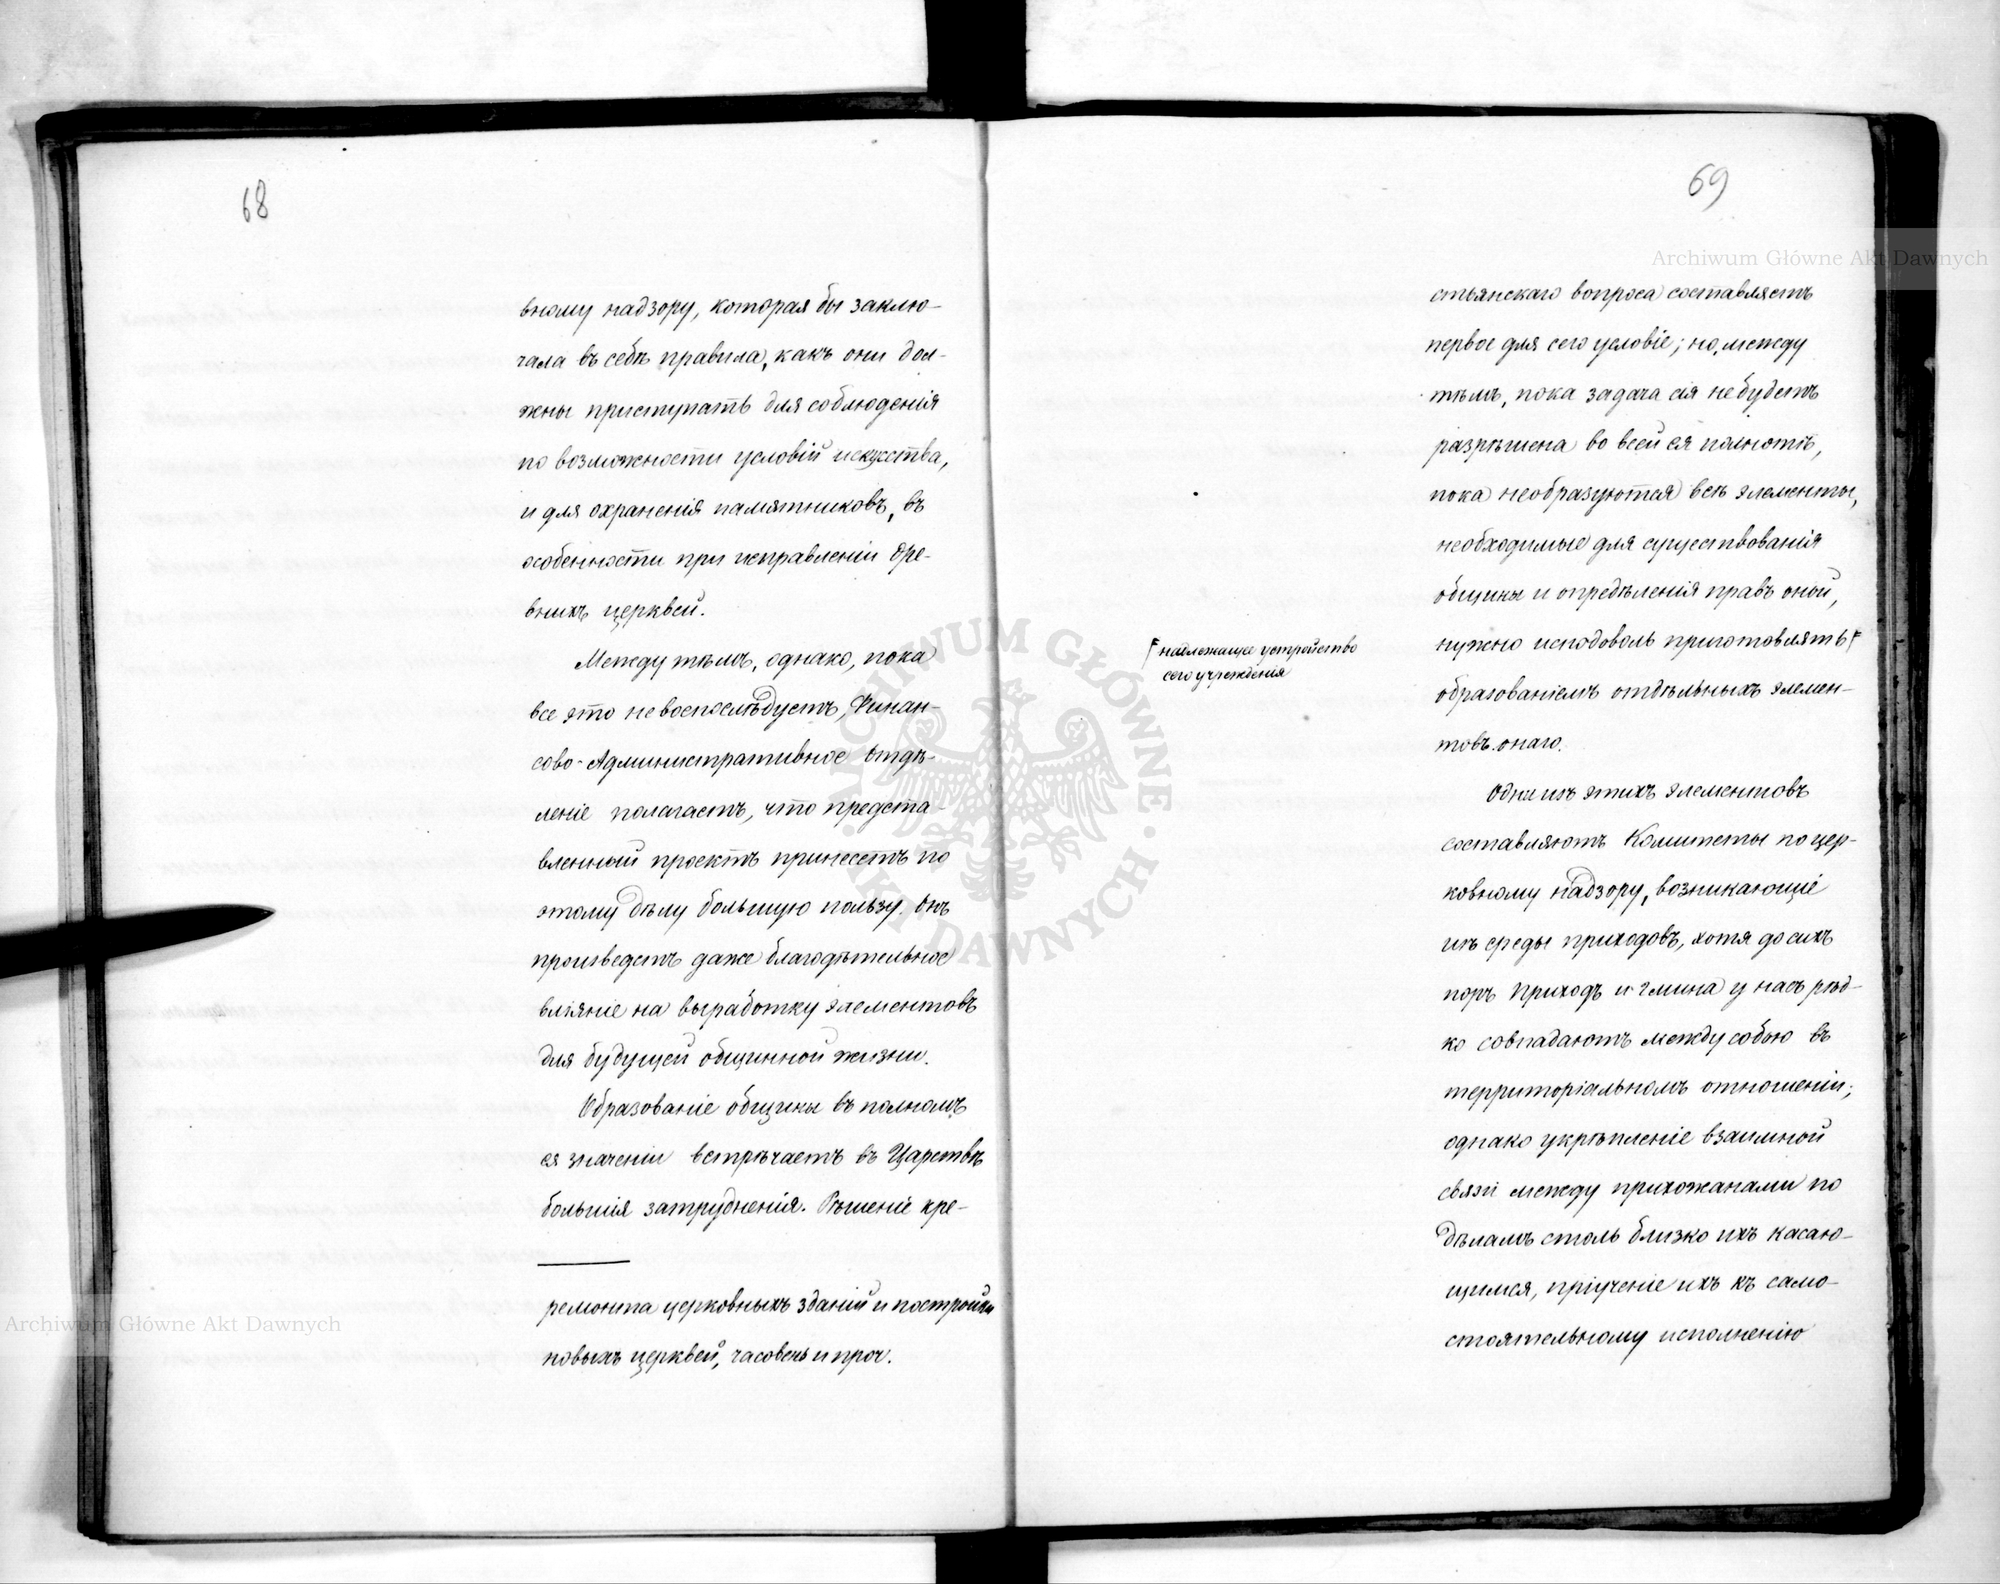 68
вному надзору, которая бы заклю-
чала въ себѣ правила, какъ они дол-
жны приступать для соблюденія
по возможности условій искусства,
и для охраненія памятниковъ, въ
особенности при исправленіи дре-
внихъ церквей.
Между тѣмъ, однако, пока
все это не воспослѣдуетъ, Финан-
сово-Административное Отдѣ-
леніе полагаетъ, что предста-
вленный проектъ принесетъ по
этому дѣлу большую пользу. Онъ
произведетъ даже благодѣтельное
вліяніе на выработку элементовъ
для будущей общинной жизни.
Образованіе общины въ полномъ
ея значеніи встрѣчаетъ въ Царствѣ
большія затрудненія. Рѣшеніе кре-
ремонта церковныхъ зданій и постройки
новыхъ церквей, часовень и проч.
69
стьянскаго вопроса составляетъ
первое для сего условіе; но, между
тѣмъ, пока задача сія не будетъ
разрѣшена во всей ея полнотѣ,
пока необразуются всѣ элементы,
необходимые для существованія
общины и опредѣленія правъ оной,
нужно исподоволь приготовлять
надлежащее устройство
сего учрежденія
образованіемъ отдѣльныхъ элемен-
товъ онаго.
Одни изъ этихъ элементовъ
составляютъ Комитеты по цер-
ковному надзору, возникающіе
изъ среды приходовъ, хотя до сихъ
поръ приходъ и гмина у насъ рѣд-
ко совпадаютъ между собою въ
территоріальномъ отношеніи;
однако укрѣпленіе взаимной
связи между прихожанами по
дѣламъ столь близко ихъ касаю-
щимся, пріученіе ихъ къ само-
стоятельному исполненію
Archiwum Główne Akt Dawnych
Archiwum Główne Akt Dawnych
ARCHIWUM GŁÓWNE · AKT DAWNYCH ·